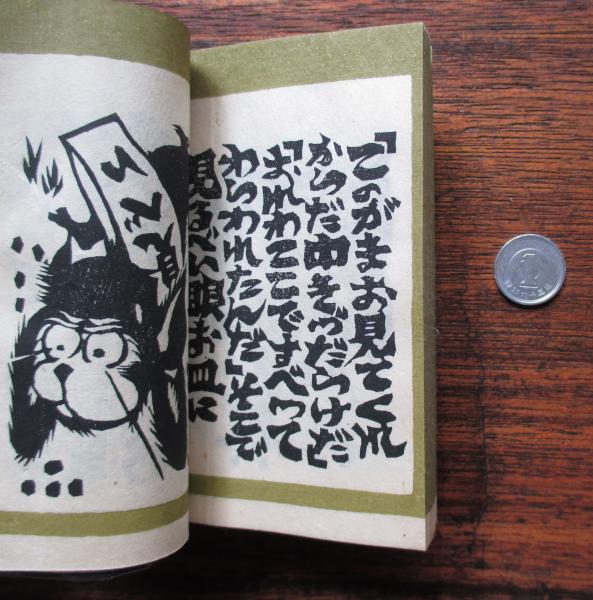 「このざまお見てくれ
からだ中きづだらけだ」
「おれわここですべって
わらわれたんだ」そこで
見るべい眼お皿に
1